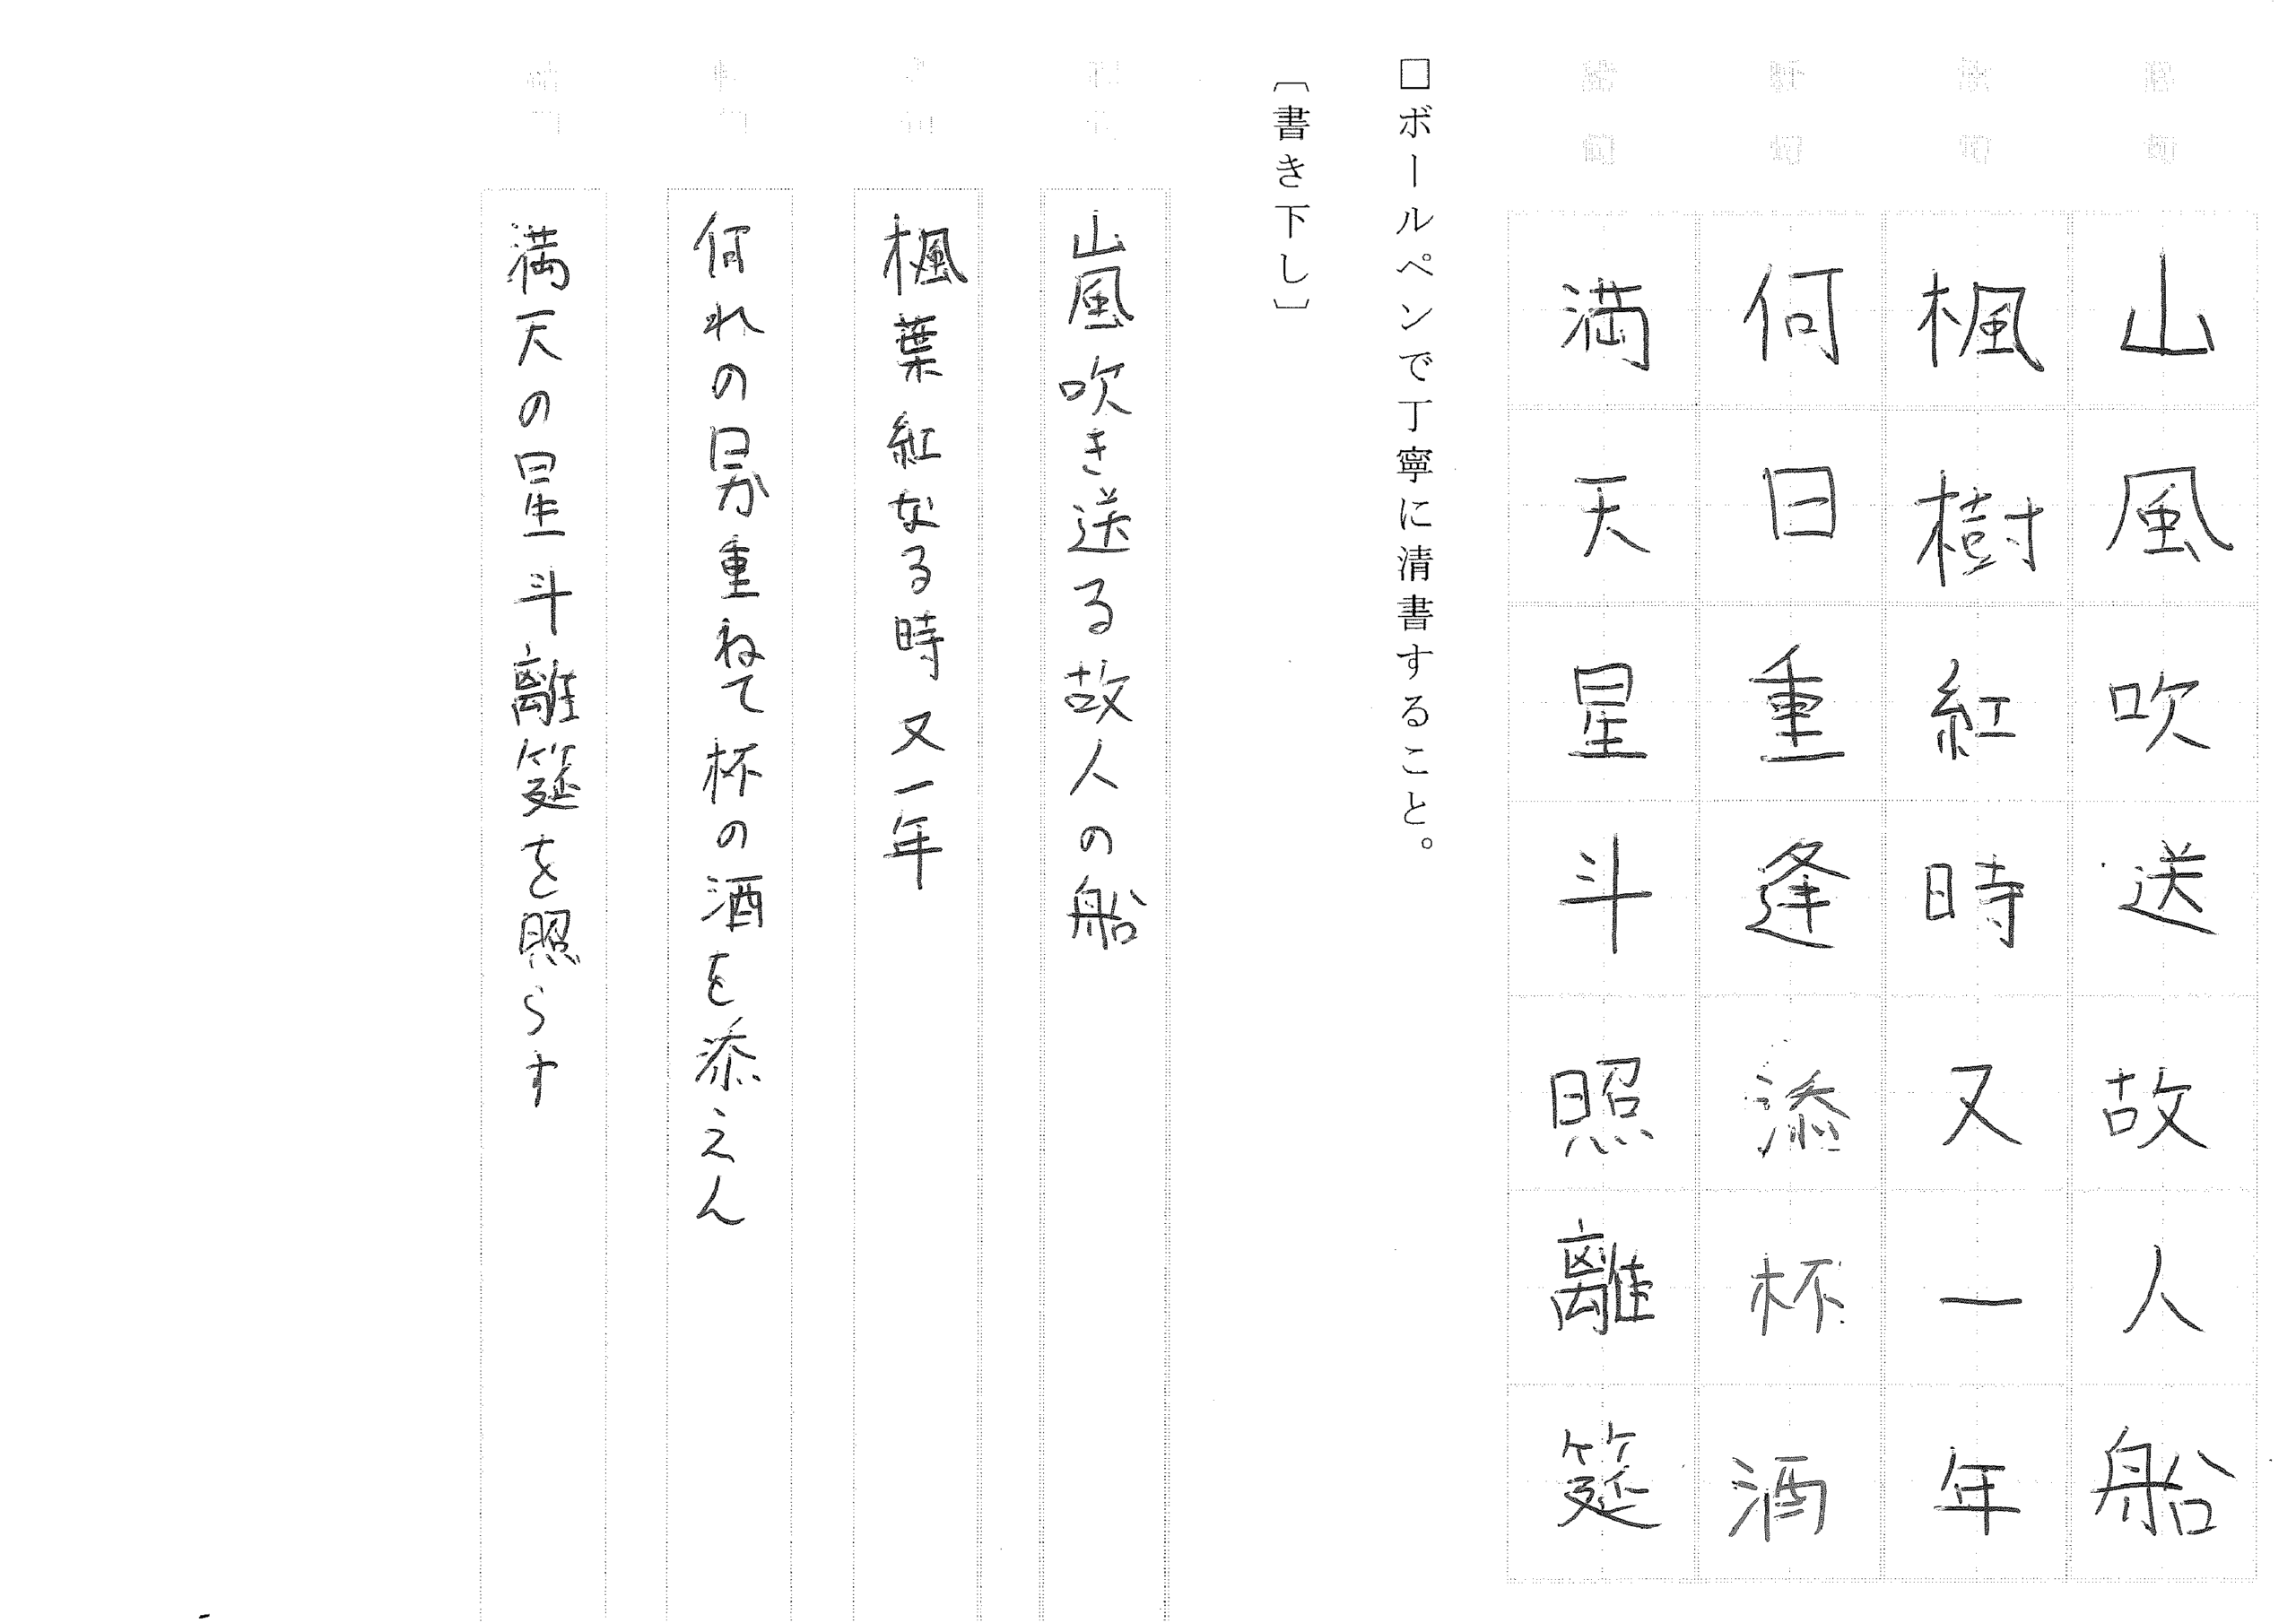 山風吹送故人船
楓樹紅時又一年
何日重逢添杯酒
満天星斗照離筵
□ボールペンで丁寧に清書すること。
〔書き下し〕
山風吹き送る故人の船
楓葉紅なる時又一年
何れの日か重ねて杯の酒を添えん
満天の星斗離筵を照らす